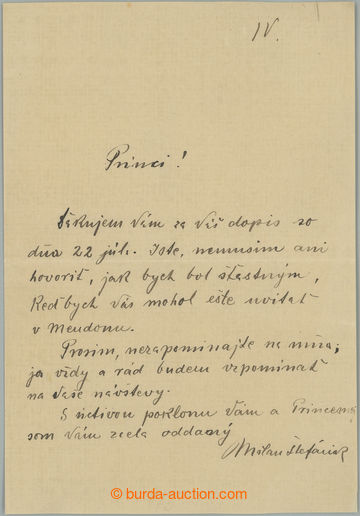 IV.
Princi!
Ďakujem Vám za Váš dopis zo
dňa 22 júli. Iste, nemusím ani
hovoriť, jak bych bol šťastným,
keď bych Vás mohol ešte uvítať
v Meudonu.
Prosím, nezapomínajte na mňa;
ja vždy a rád budem vzpomínať
na Vaše návštevy.
S úctivou poklonu Vám a Princezně
som Vám zcela oddaný
Milan Štefánik
© burda-auction.com